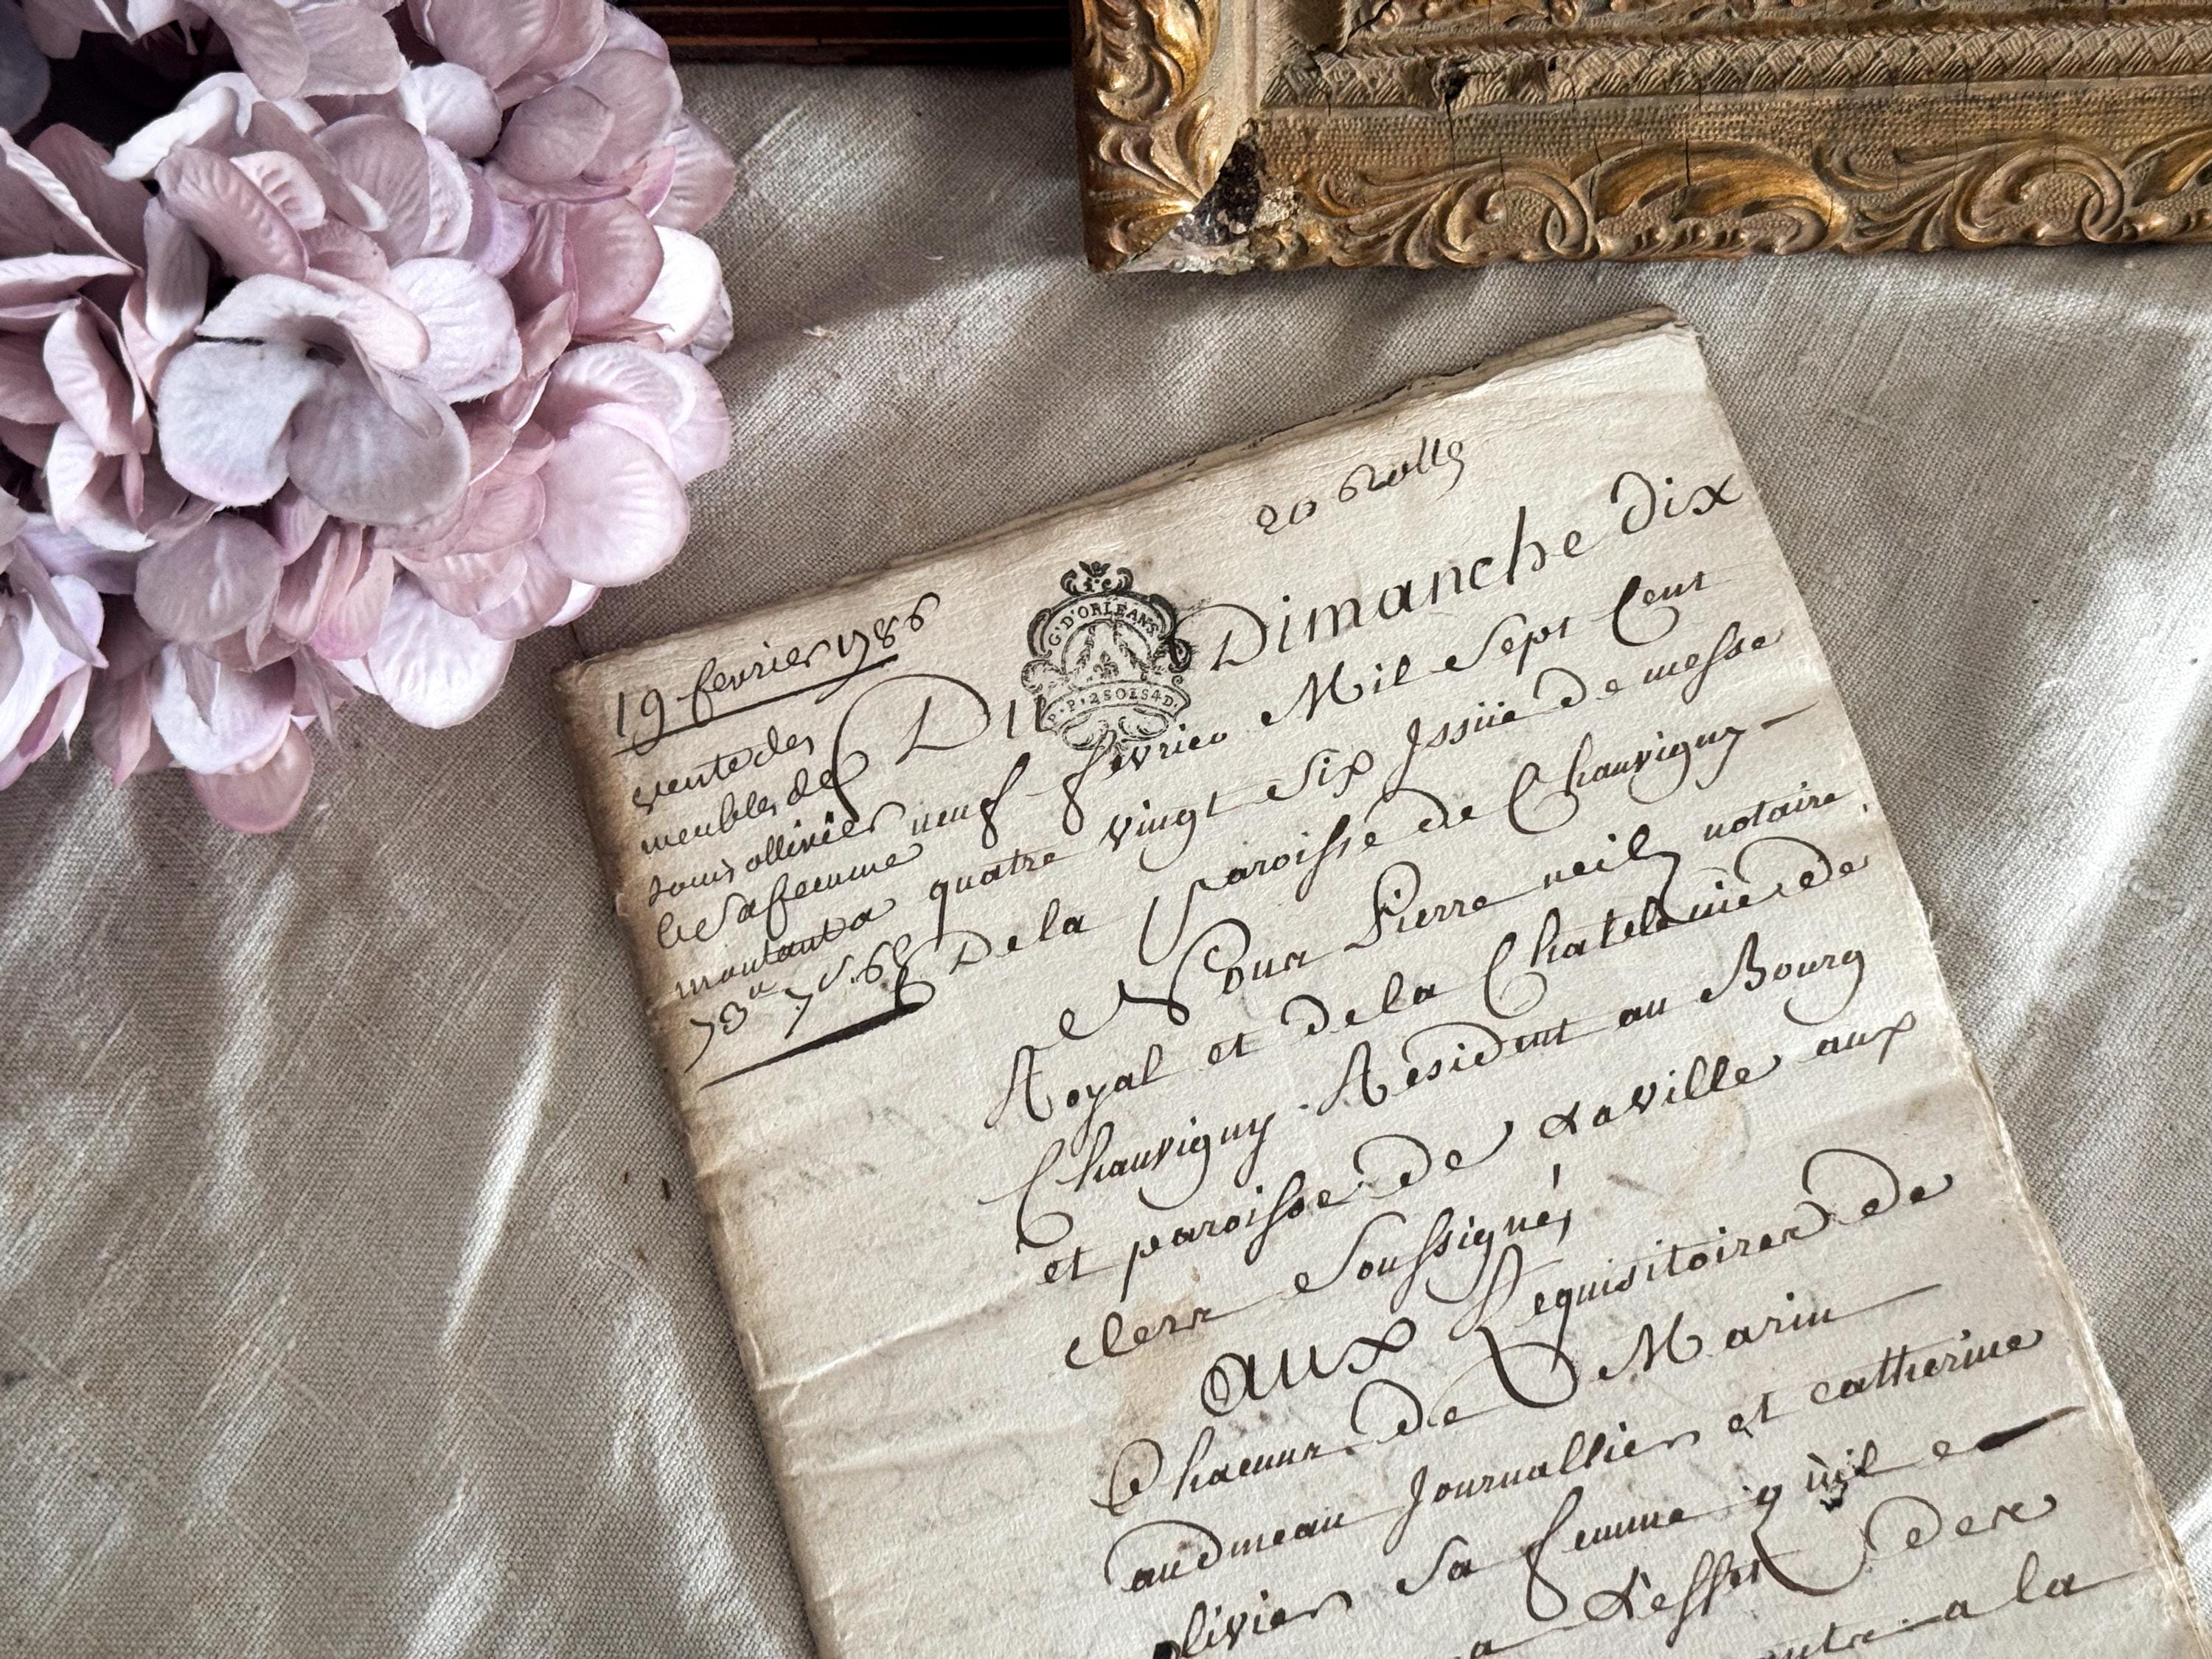 20 Rolls
19 fevrier 1786
vente des
meubles de
louis ollivier
et Sa femme
montant a
73 7 s. 6 d
G. D'ORLEANS
P. P. 2 SOLS 4 D.
Du Dimanche dix
neuf fevrier Mil Sept Cent
quatre vingt Six Jssüe De messe
De la Paroisse de Chauvigny
Nous Pierre neil notaire
Royal et de la Chatelenie de
Chauvigny Résident au Bourg
et paroisse de Laville aux
clercs Soussigné
aux Requisitoires de
Chacun de Marin
Journallier et catherine
olivier Sa femme qu'il e
a L'effet des
a la